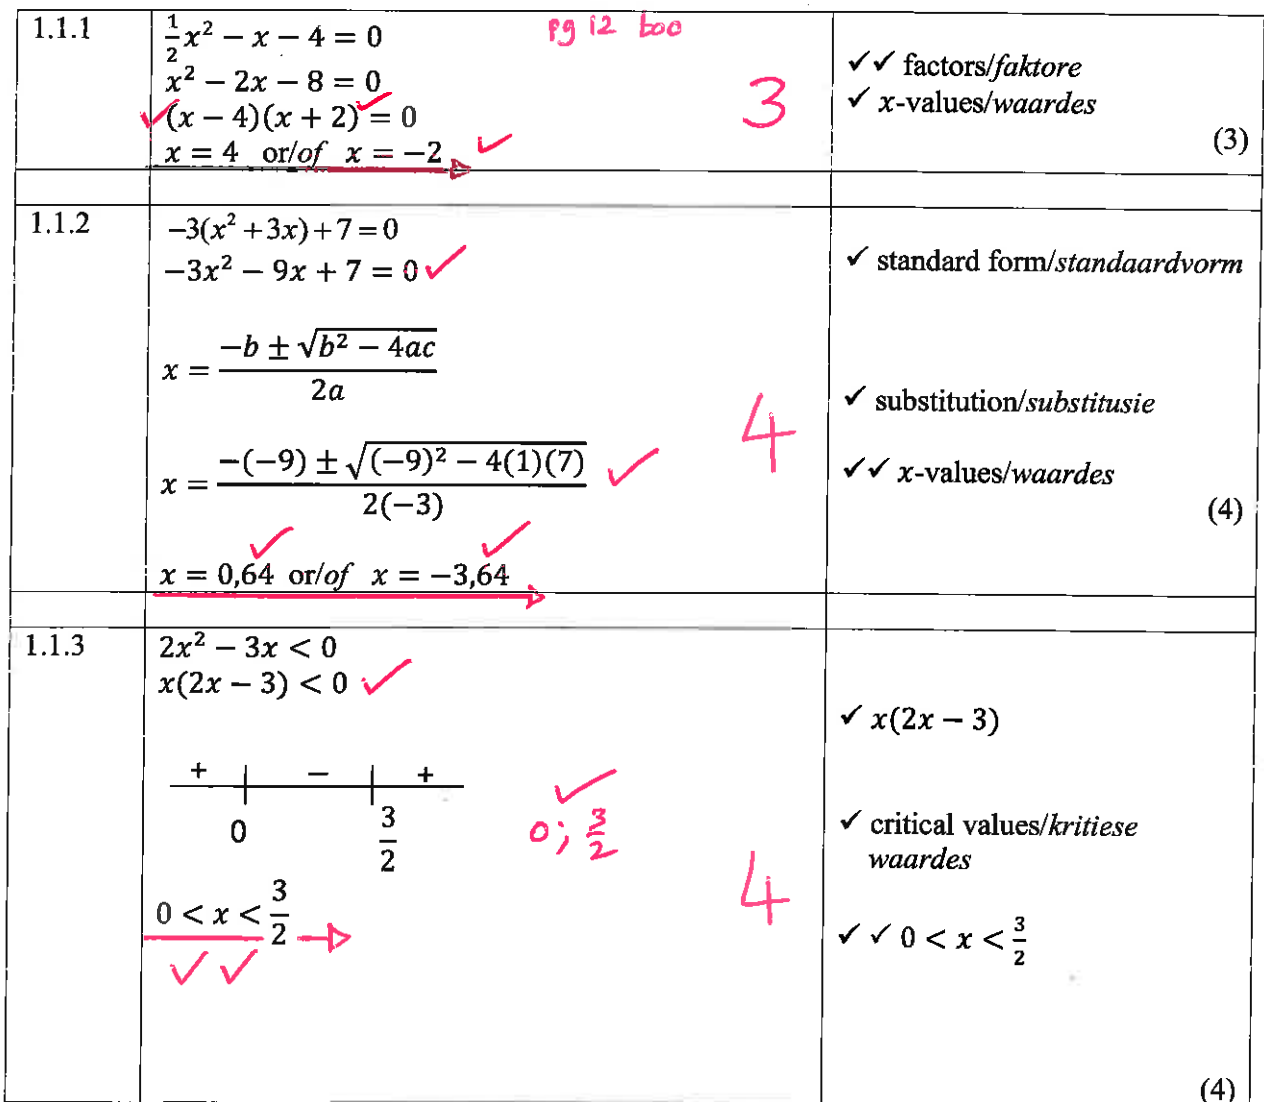 1.1.1
½x² − x − 4 = 0
pg 12 boo
x² − 2x − 8 = 0
✓(x − 4)(x + 2)✓ = 0
x = 4 or/of x = −2 ✓
3
✓✓ factors/faktore
✓ x-values/waardes
(3)
1.1.2
−3(x² + 3x) + 7 = 0
−3x² − 9x + 7 = 0 ✓
x = (−b ± √(b² − 4ac))/(2a)
x = (−(−9) ± √((−9)² − 4(1)(7)))/(2(−3)) ✓
✓ ✓
x = 0,64 or/of x = −3,64
4
✓ standard form/standaardvorm
✓ substitution/substitusie
✓✓ x-values/waardes
(4)
1.1.3
2x² − 3x < 0
x(2x − 3) < 0 ✓
+ − +
0 3/2
✓
0; 3/2
0 < x < 3/2
✓ ✓
4
✓ x(2x − 3)
✓ critical values/kritiese
waardes
✓ ✓ 0 < x < 3/2
(4)